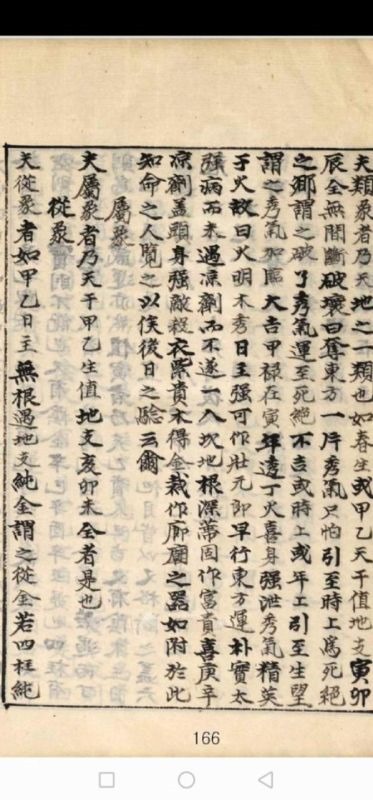 夫類象者乃天地之一類也如春生或甲乙天干值地支寅卯
辰全無間斷破壞曰奪東方一片秀氣只怕引至時上爲死絕
之鄉謂之破了秀氣運至死絕不吉或時上或年上引至生望
謂之秀氣加臨大吉甲祿在寅年透丁火喜身强泄秀氣精英
于火故曰火明木秀日主强可作壯元即早行東方運朴實太
强病而未遇凉劑而不遂一入坎地根深蒂固作富貴喜庚辛
凉劑盖頭身强敵殺衣紫貴木得金裁作廊廟之器如附於此
知命之人覽之以俟後日之驗云爾
屬象
夫屬象者乃天干甲乙生值地支亥卯未全者是也
從象
夫從象者如甲乙日主無根遇地支純金謂之從金若四柱純
166